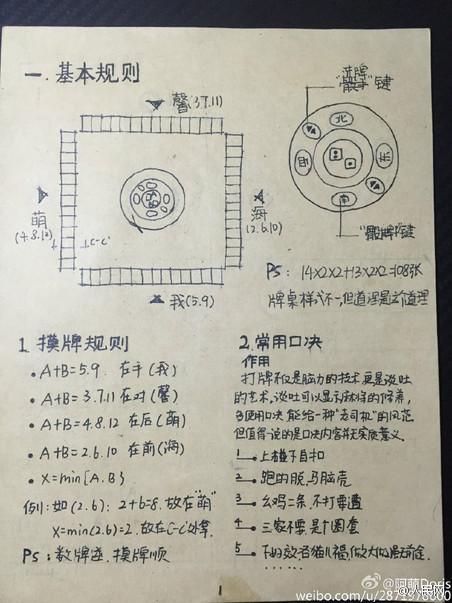 一.基本规则
馨(3.7.11)
萌
(4.8.12)
C-C'
海
(2.6.10)
我(5.9)
"骰子"键
北
西
东
南
"洗牌"键
PS: 14×2×2+13×2×2=108张
牌桌样式不一,但道理是这道理
1. 摸牌规则
• A+B=5.9 在手(我)
• A+B=3.7.11 在对(馨)
• A+B=4.8.12 在后(萌)
• A+B=2.6.10 在前(海)
• X=min{A.B}
例:如(2.6): 2+6=8. 放在"萌"
X=min(2.6)=2. 放在C-C'处拿.
PS:数牌逆.摸牌顺
2.常用口决
作用
打牌不仅是脑力的技术更是谈吐
的艺术,谈吐可以显示麻将的修养,
使用口决能给一种"老司机"的风范
但值得一说的是口决内容并无实质意义.
1 上碰不自扣
2 跑的脱,马脑壳
3 幺鸡二条,不打要遭
4 三家不要,是个圈套
5
......
1
@阿萌Doris
weibo.com/u/2874976800
人民网